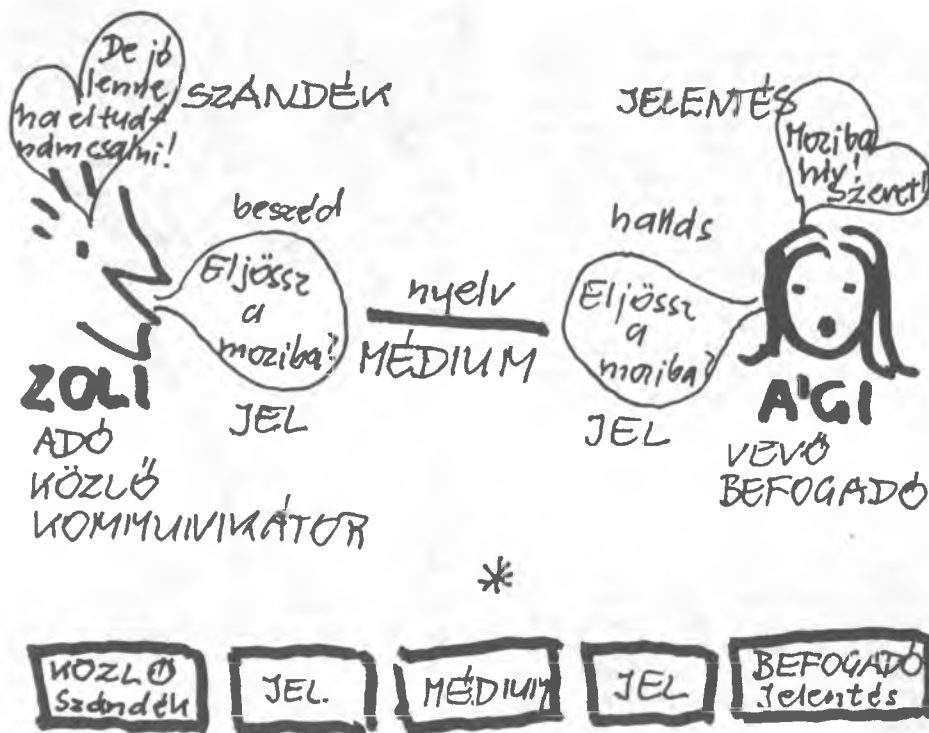 De jó
lenne,
ha el tud-
nám csalni!
SZÁNDÉK
JELENTÉS
Moziba
hív!
Szeret!
beszéd
Eljössz
a
moziba?
JEL
nyelv
MÉDIUM
hallás
Eljössz
a
moziba?
JEL
ZOLI
ADÓ
KÖZLŐ
KOMMUNIKÁTOR
ÁGI
VEVŐ
BEFOGADÓ
*
KÖZLŐ
Szándék
JEL.
MÉDIUM
JEL
BEFOGADÓ
Jelentés